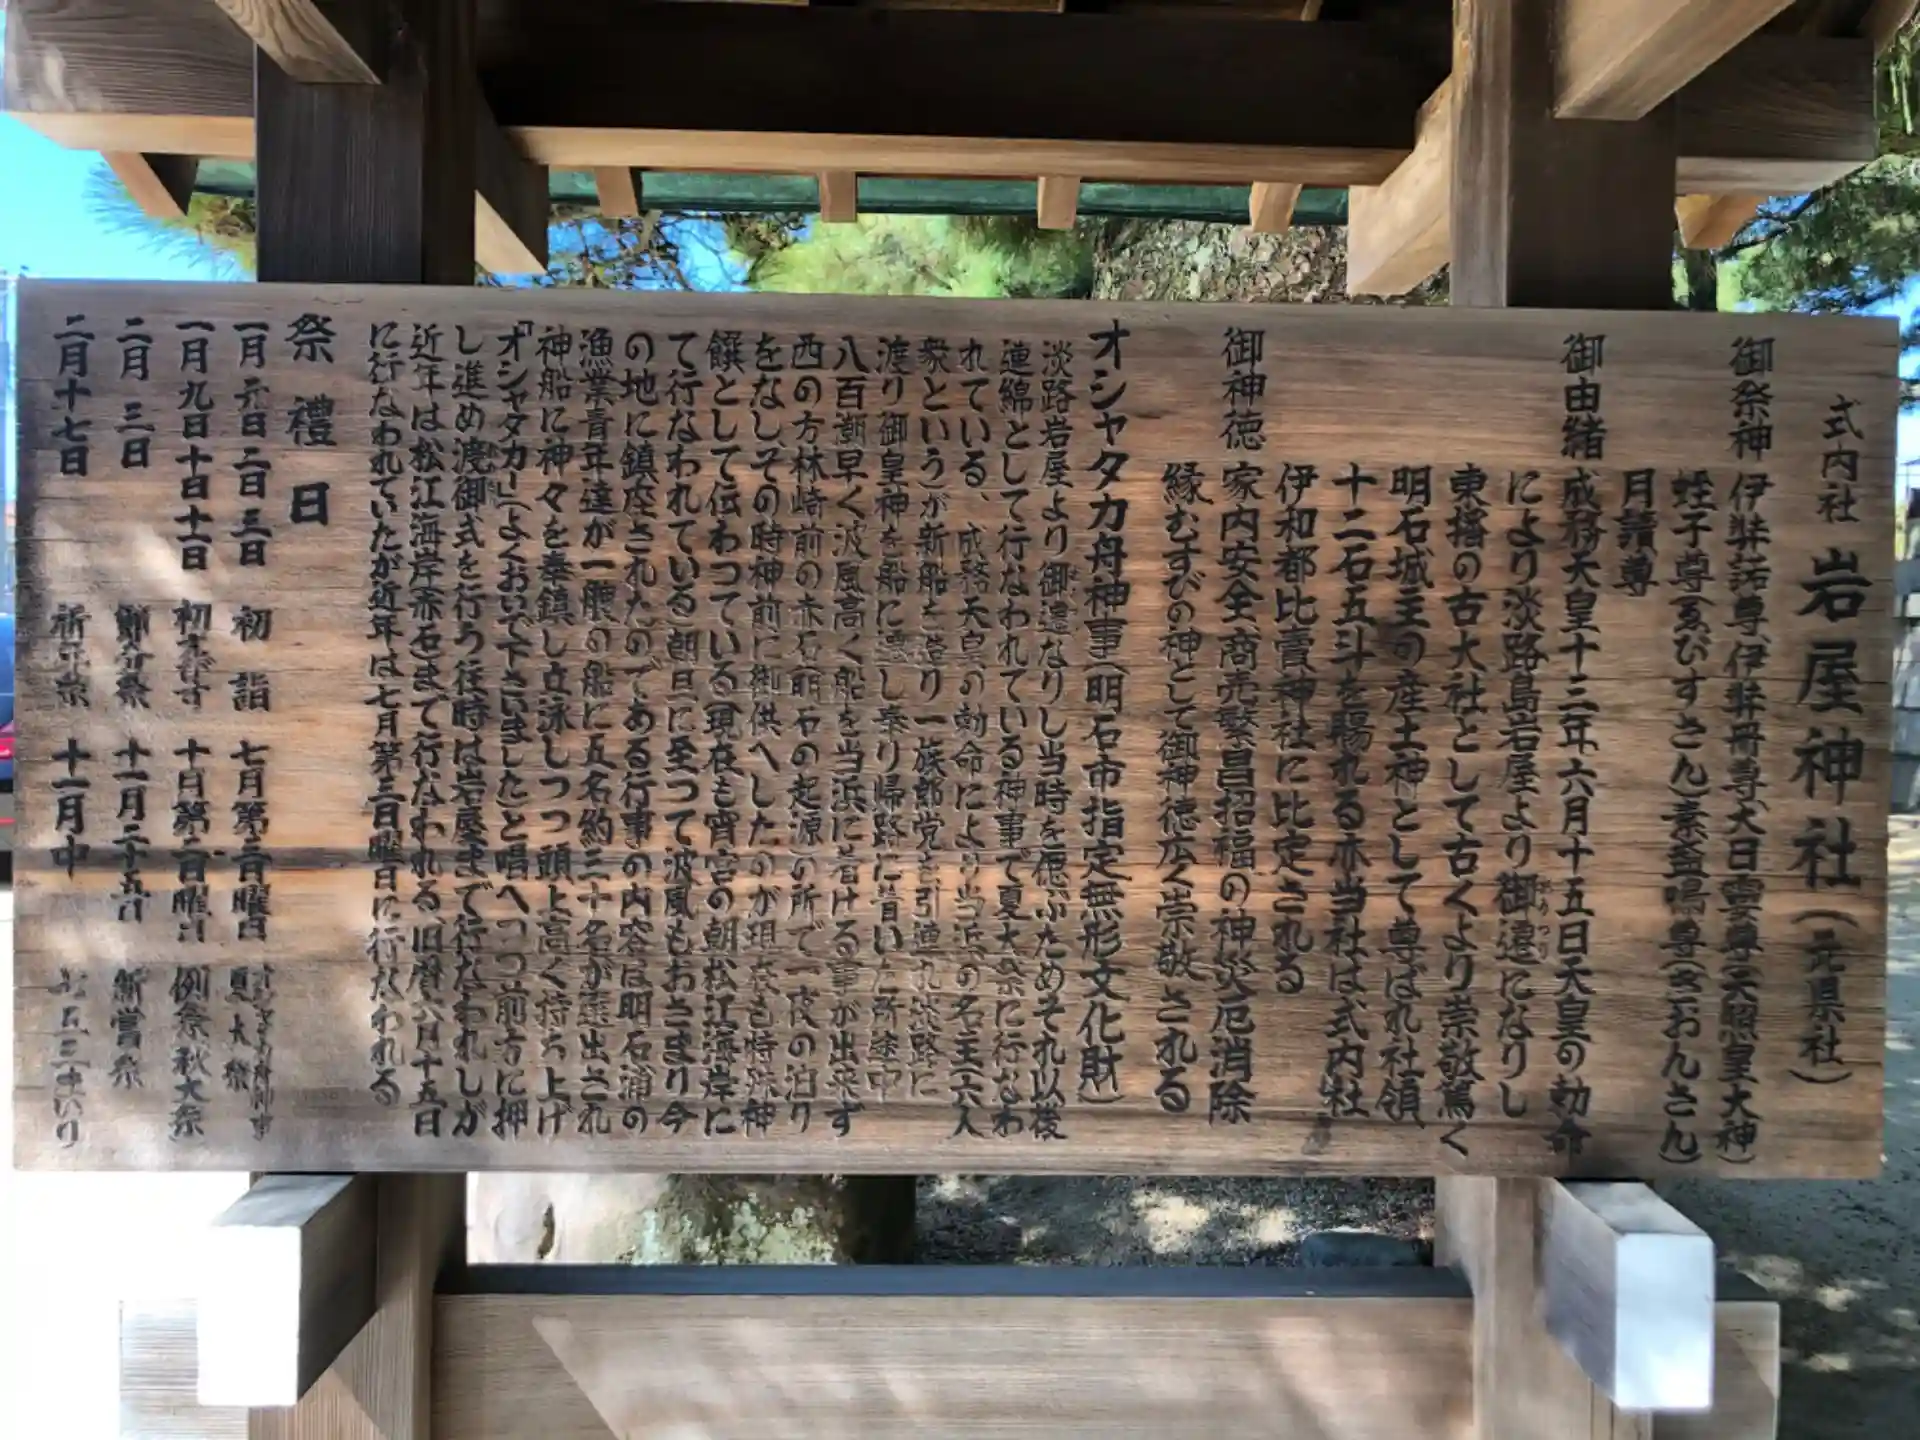 式内社 岩屋神社(元県社)
御祭神 伊弉諾尊、伊弉冊尊、大日霎尊(天照皇大神)
蛭子尊(ゑびすさん)素盞嗚尊(ぎおんさん)
月讀尊
御由緒 成務天皇十三年六月十五日天皇の勅命
により淡路島岩屋より御遷になりし
東播の古大社として古くより崇敬篤く
明石城主の産土神として尊ばれ社領
十二石五斗を賜れる亦当社は式内社
伊和都比賣神社に比定される
御神徳 家内安全商売繁昌招福の神災厄消除
縁むすびの神として御神徳広く崇敬される
オシャタカ舟神事(明石市指定無形文化財)
淡路岩屋より御遷なりし当時を偲ぶためそれ以後
連綿として行なわれている神事で夏大祭に行なわ
れている、成務天皇の勅命により当浜の名主六人
衆というが新船を造り一族郎党を引連れ淡路に
渡り御皇神を船に遷し奉り帰路に着いた所途中
八百潮早く波風高く船を当浜に着ける事が出来ず
西の方林崎前の赤石(明石の起源)の所で一夜の泊り
をなし、その時神前に御供へしたのが現在も特殊神
饌として伝わつている(現在も宵宮の朝松江海岸に
て行なわれている)朝旦に至つて波風もおさまり今
の地に鎮座されたのである行事の内容は明石浦の
漁業青年達が一艘の船に五名約三十名が選出され
神船に神々を奉鎮し立泳しつつ頭上高く持ち上げ
「オシャタカー」(よくおいで下さいました)と唱へつつ前方に押
し進め渡御式を行う往時は岩屋まで行なわれしが
近年は松江海岸赤石まで行なわれる、旧暦六月十五日
に行なわれていたが近年は七月第三日曜日に行なわれる
祭禮日
一月元日二日三日 初詣 七月第三日曜日 夏大祭
一月九日十日十一日 初えびす 十月第二日曜日 例祭秋大祭
二月三日 節分祭 十一月二十五日 新嘗祭
二月十七日 祈年祭 十一月中 七五三まいり